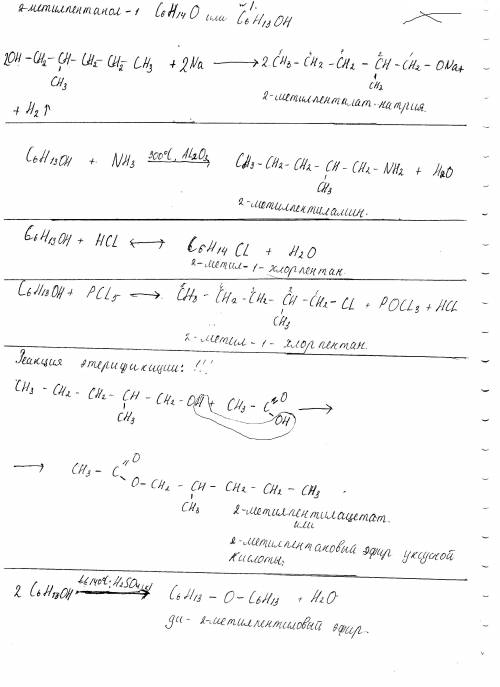 2-метилпентанол-1 C6H14O или C6H13OH
2OH-CH2-CH-CH2-CH2-CH3 + 2Na → 2CH3-CH2-CH2-CH-CH2-ONa +
CH3 CH2
2-метилпенталат-натрия.
+ H2↑
C6H13OH + NH3 300°C, Al2O3 CH3-CH2-CH2-CH-CH2-NH2 + H2O
CH3
2-метилпентиламин.
C6H13OH + HCL ↔ C6H14CL + H2O
2-метил-1-хлорпентан
C6H13OH + PCL5 → CH3-CH2-CH2-CH-CH2-CL + POCL3 + HCL
CH3
2-метил-1-хлорпентан.
Реакция этерификации: !!!
CH3-CH2-CH2-CH-CH2-OH + CH3-C=O →
CH3 OH
→ CH3-C=O
O-CH2-CH-CH2-CH2-CH3.
CH3 2-метилпентилацетат.
или
2-метилпентановый эфир уксусной
кислоты;
2 C6H13OH t≤140°C, H2SO4(к) → C6H13-O-C6H13 + H2O
ди-2-метилпентиловый эфир.